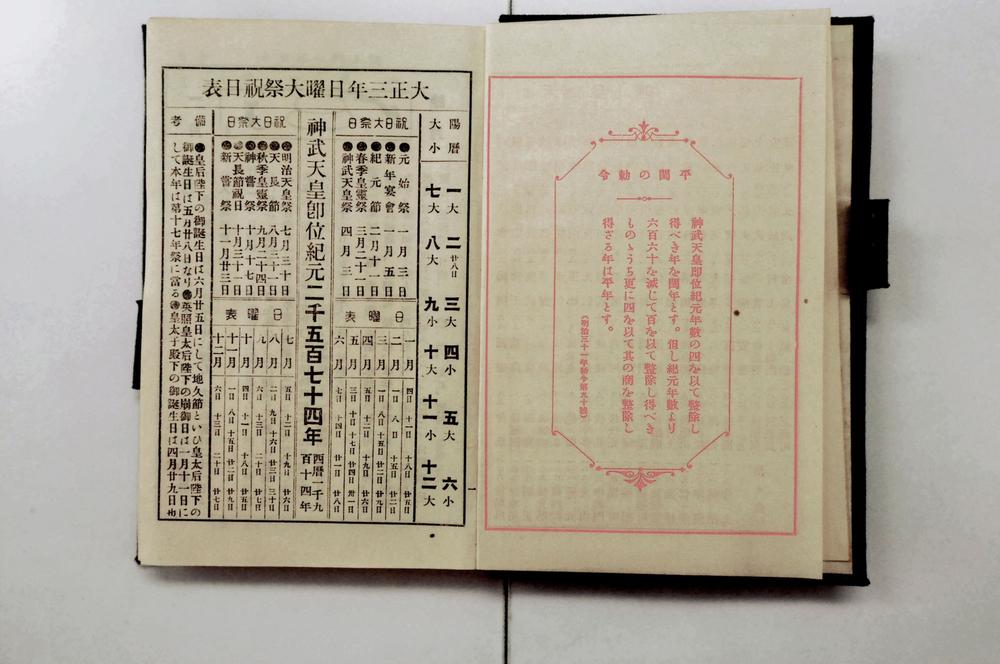 平閏の勅令
神武天皇即位紀元年數の四を以て整除し
得べき年を閏年とす。但し紀元年數より
六百六十を減じて百を以て整除し得べき
ものゝうち更に四を以て其の商を整除し
得ざる年は平年とす。
(明治三十一年勅令第九十號)
大正三年日曜大祭祝日表
陽曆
大小
一大 二廿八日 三大 四小 五大 六小
七大 八大 九小 十大 十一小 十二大
祝日大祭日
●元始祭 一月三日
●新年宴會 一月五日
●紀元節 二月十一日
●春季皇靈祭 三月二十一日
●神武天皇祭 四月三日
日曜表
一月 四日 十一日 十八日 廿五日
二月 一日 八日 十五日 廿二日
三月 一日 八日 十五日 廿二日 廿九日
四月 五日 十二日 十九日 廿六日
五月 三日 十日 十七日 廿四日 卅一日
六月 七日 十四日 廿一日 廿八日
神武天皇卽位紀元二千五百七十四年
西曆一千九
百十四年
祝日大祭日
●明治天皇祭 七月三十日
●天長節 八月三十一日
●秋季皇靈祭 九月二十四日
●神嘗祭 十月十七日
●天長節祝日 十月三十一日
●新嘗祭 十一月廿三日
日曜表
七月 五日 十二日 十九日 廿六日
八月 二日 九日 十六日 廿三日 三十日
九月 六日 十三日 二十日 廿七日
十月 四日 十一日 十八日 廿五日
十一月 一日 八日 十五日 廿二日 廿九日
十二月 六日 十三日 二十日 廿七日
備考
●皇后陛下の御誕生日は六月廿五日にして地久節といひ皇太后陛下の
御誕生日は五月廿八日なり●英照皇太后陛下の崩御日は一月十一日に
して本年は第十七年祭に當る●皇太子殿下の御誕生日は四月廿九日也
一